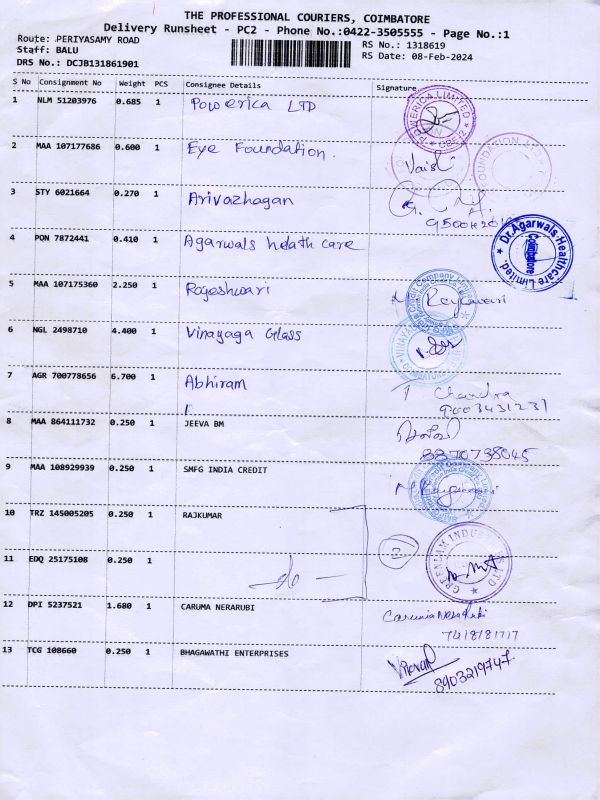 THE PROFESSIONAL COURIERS, COIMBATORE
Delivery Runsheet - PC2 - Phone No.:0422-3505555 - Page No.:1
Route: PERIYASAMY ROAD RS No.: 1318619
Staff: BALU RS Date: 08-Feb-2024
DRS No.: DCJB131861901
S No Consignment No Weight PCS Consignee Details Signature
1 NLM 51203976 0.685 1 Powerica LTD
POWERICA LIMITED
2 MAA 107177686 0.600 1 Eye Foundation. Vaish
FOUNDATION
3 STY 6021664 0.270 1 Arivazhagan
4 PON 7872441 0.410 1 Agarwals helath care
Dr.Agarwals Healthcare Limited. Coimbatore
5 MAA 107175360 2.250 1 Rageshwari
6 NGL 2498710 4.400 1 Vinayaga Glass
7 AGR 700778656 6.700 1 Abhiram T Chandra
9003431231
8 MAA 864111732 0.250 1 JEEVA BM
8870738045
9 MAA 108929939 0.250 1 SMFG INDIA CREDIT
10 TRZ 145005205 0.250 1 RAJKUMAR
GREENLAM INDUSTRIES LTD
11 EDQ 25175108 0.250 1
12 DPI 5237521 1.680 1 CARUMA NERARUBI
13 TCG 108660 0.250 1 BHAGAWATHI ENTERPRISES
8903219747